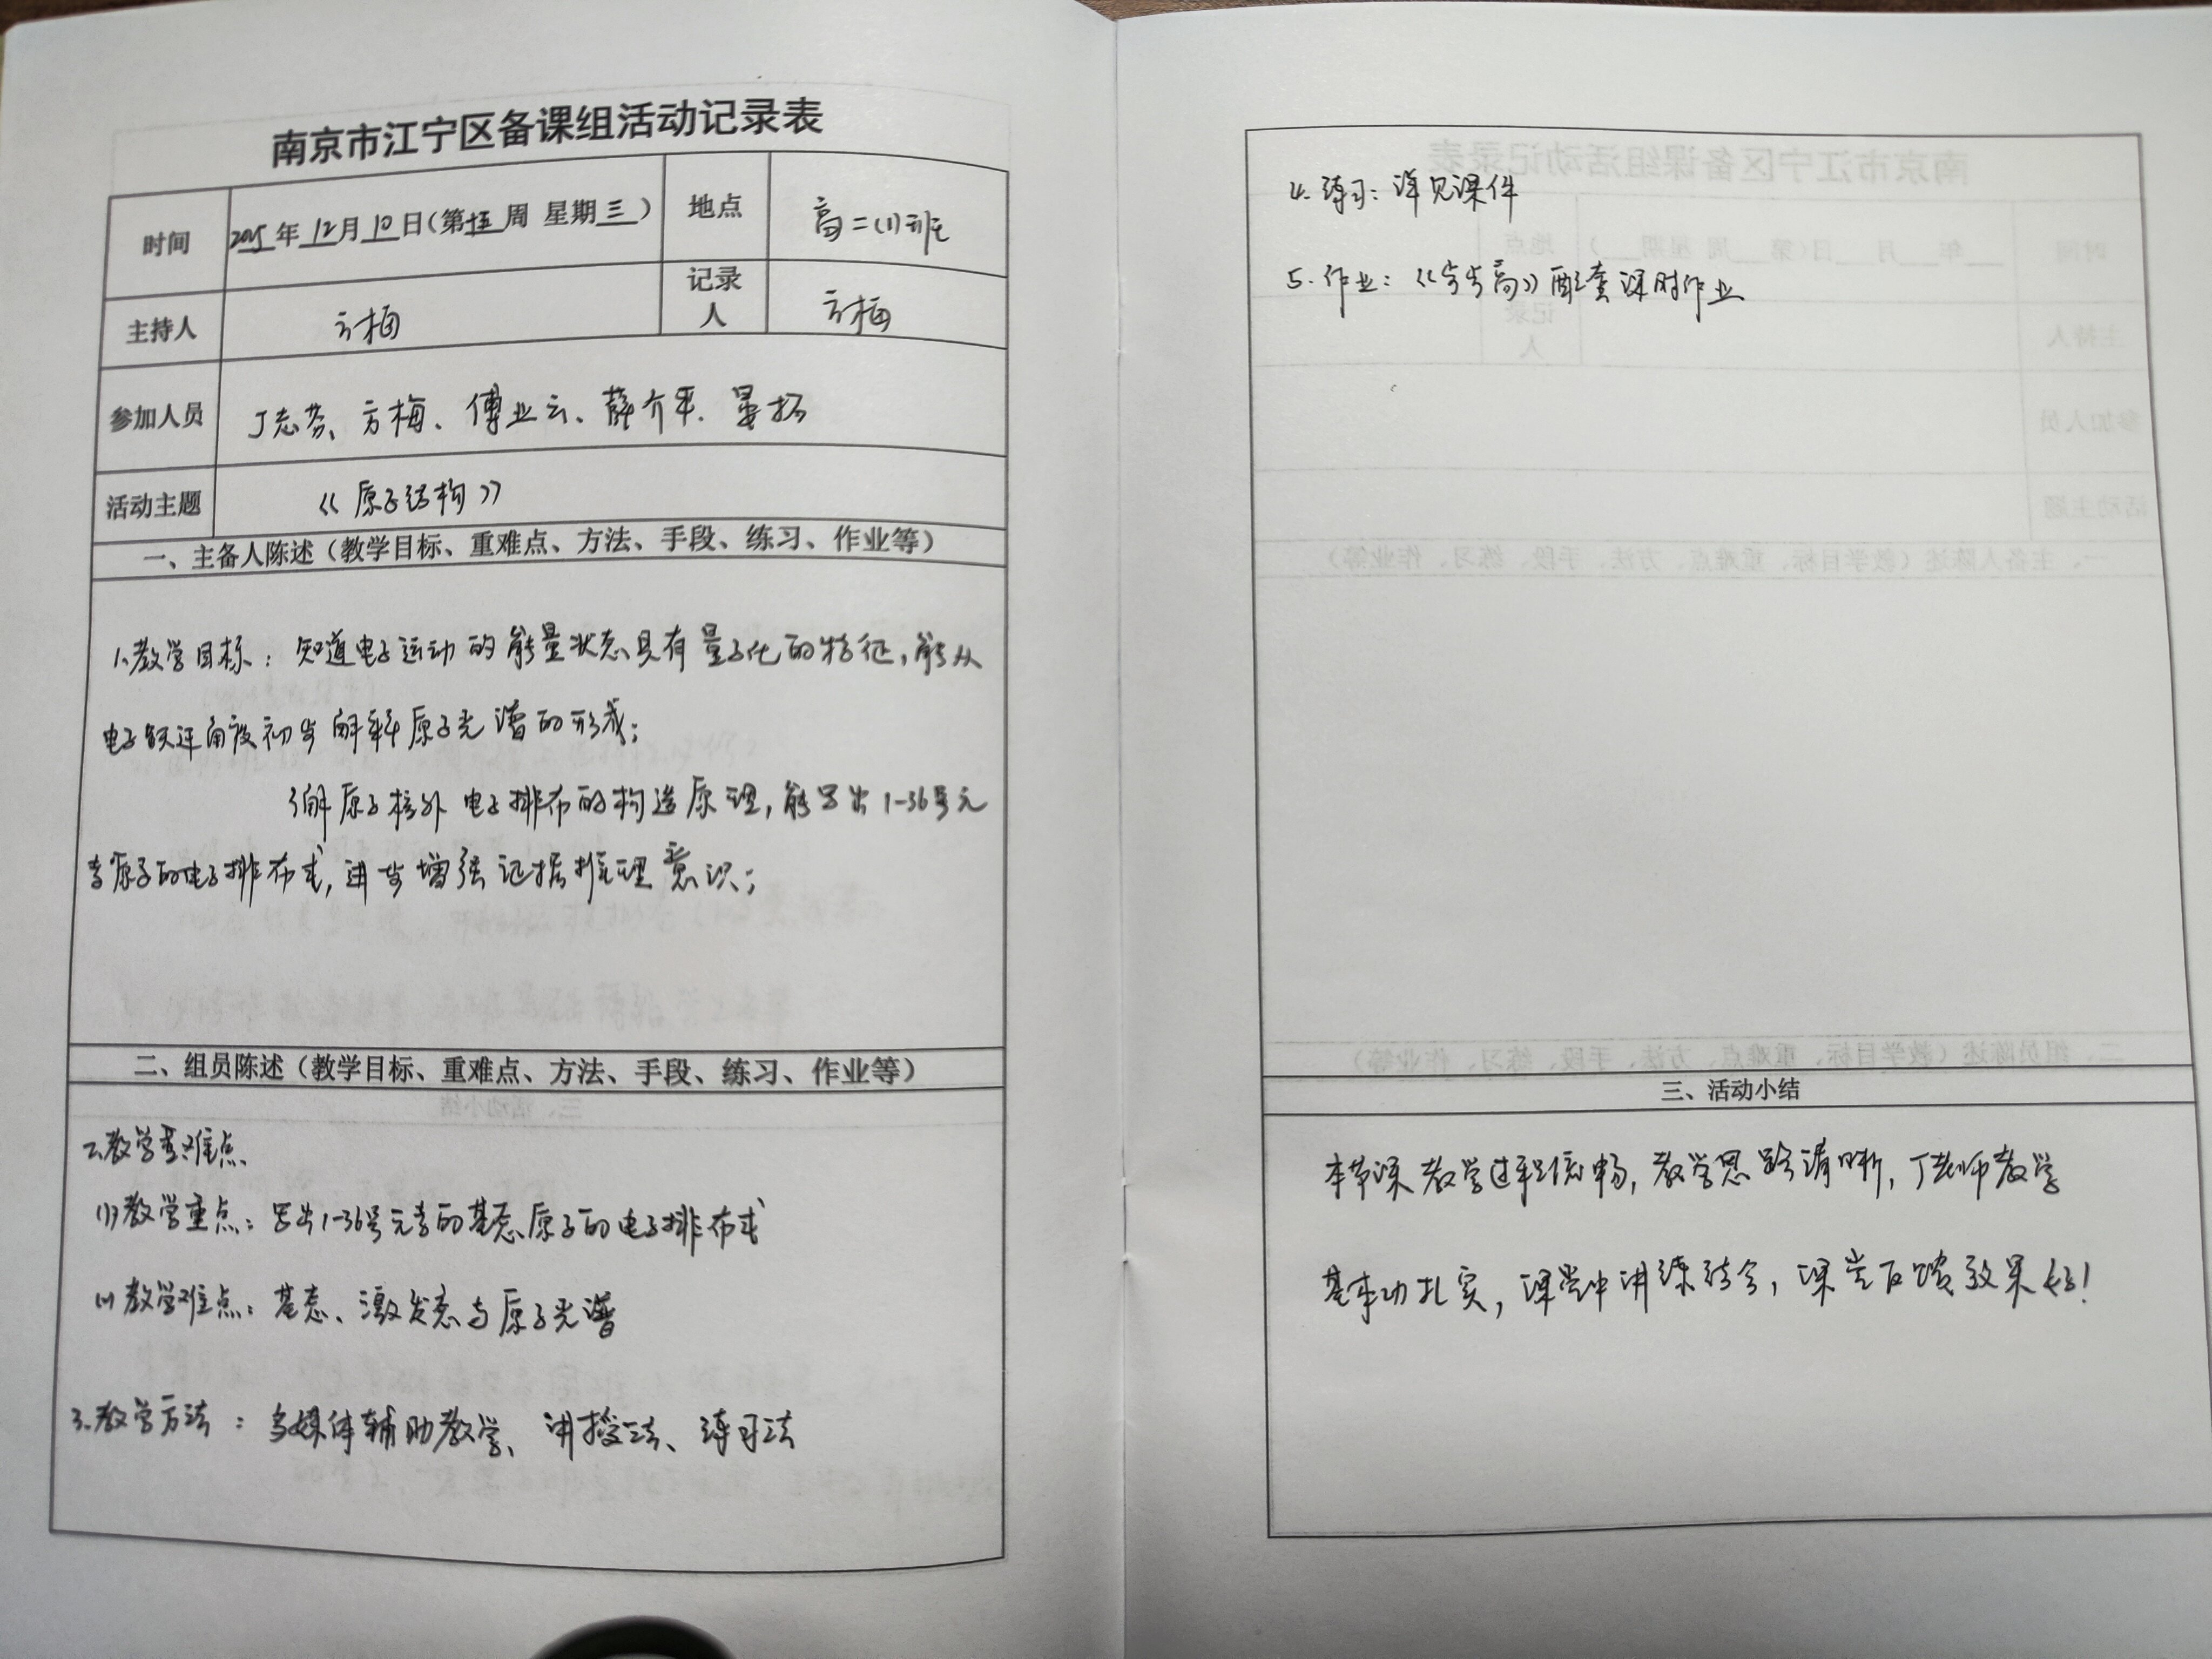 南京市江宁区备课组活动记录表
时间 2025年12月10日(第十五周 星期三) 地点 高二(1)班
主持人 方梅 记录人 方梅
参加人员 丁志芬、方梅、傅业云、薛介平、晏扬
活动主题 《原子结构》
一、主备人陈述(教学目标、重难点、方法、手段、练习、作业等)
1、教学目标:知道电子运动的能量状态具有量子化的特征,能从
电子跃迁角度初步解释原子光谱的形成;
了解原子核外电子排布的构造原理,能写出1-36号元
素原子的电子排布式,进步增强证据推理意识;
二、组员陈述(教学目标、重难点、方法、手段、练习、作业等)
2.教学重难点
(1)教学重点:写出1-36号元素的基态原子的电子排布式
教学难点:基态、激发态与原子光谱
3.教学方法:多媒体辅助教学、讲授法、练习法
4.练习:详见课件
5.作业:《步步高》配套课时作业
三、活动小结
本节课教学过程流畅,教学思路清晰,丁老师教学
基本功扎实,课堂中讲练结合,课堂反馈效果好!